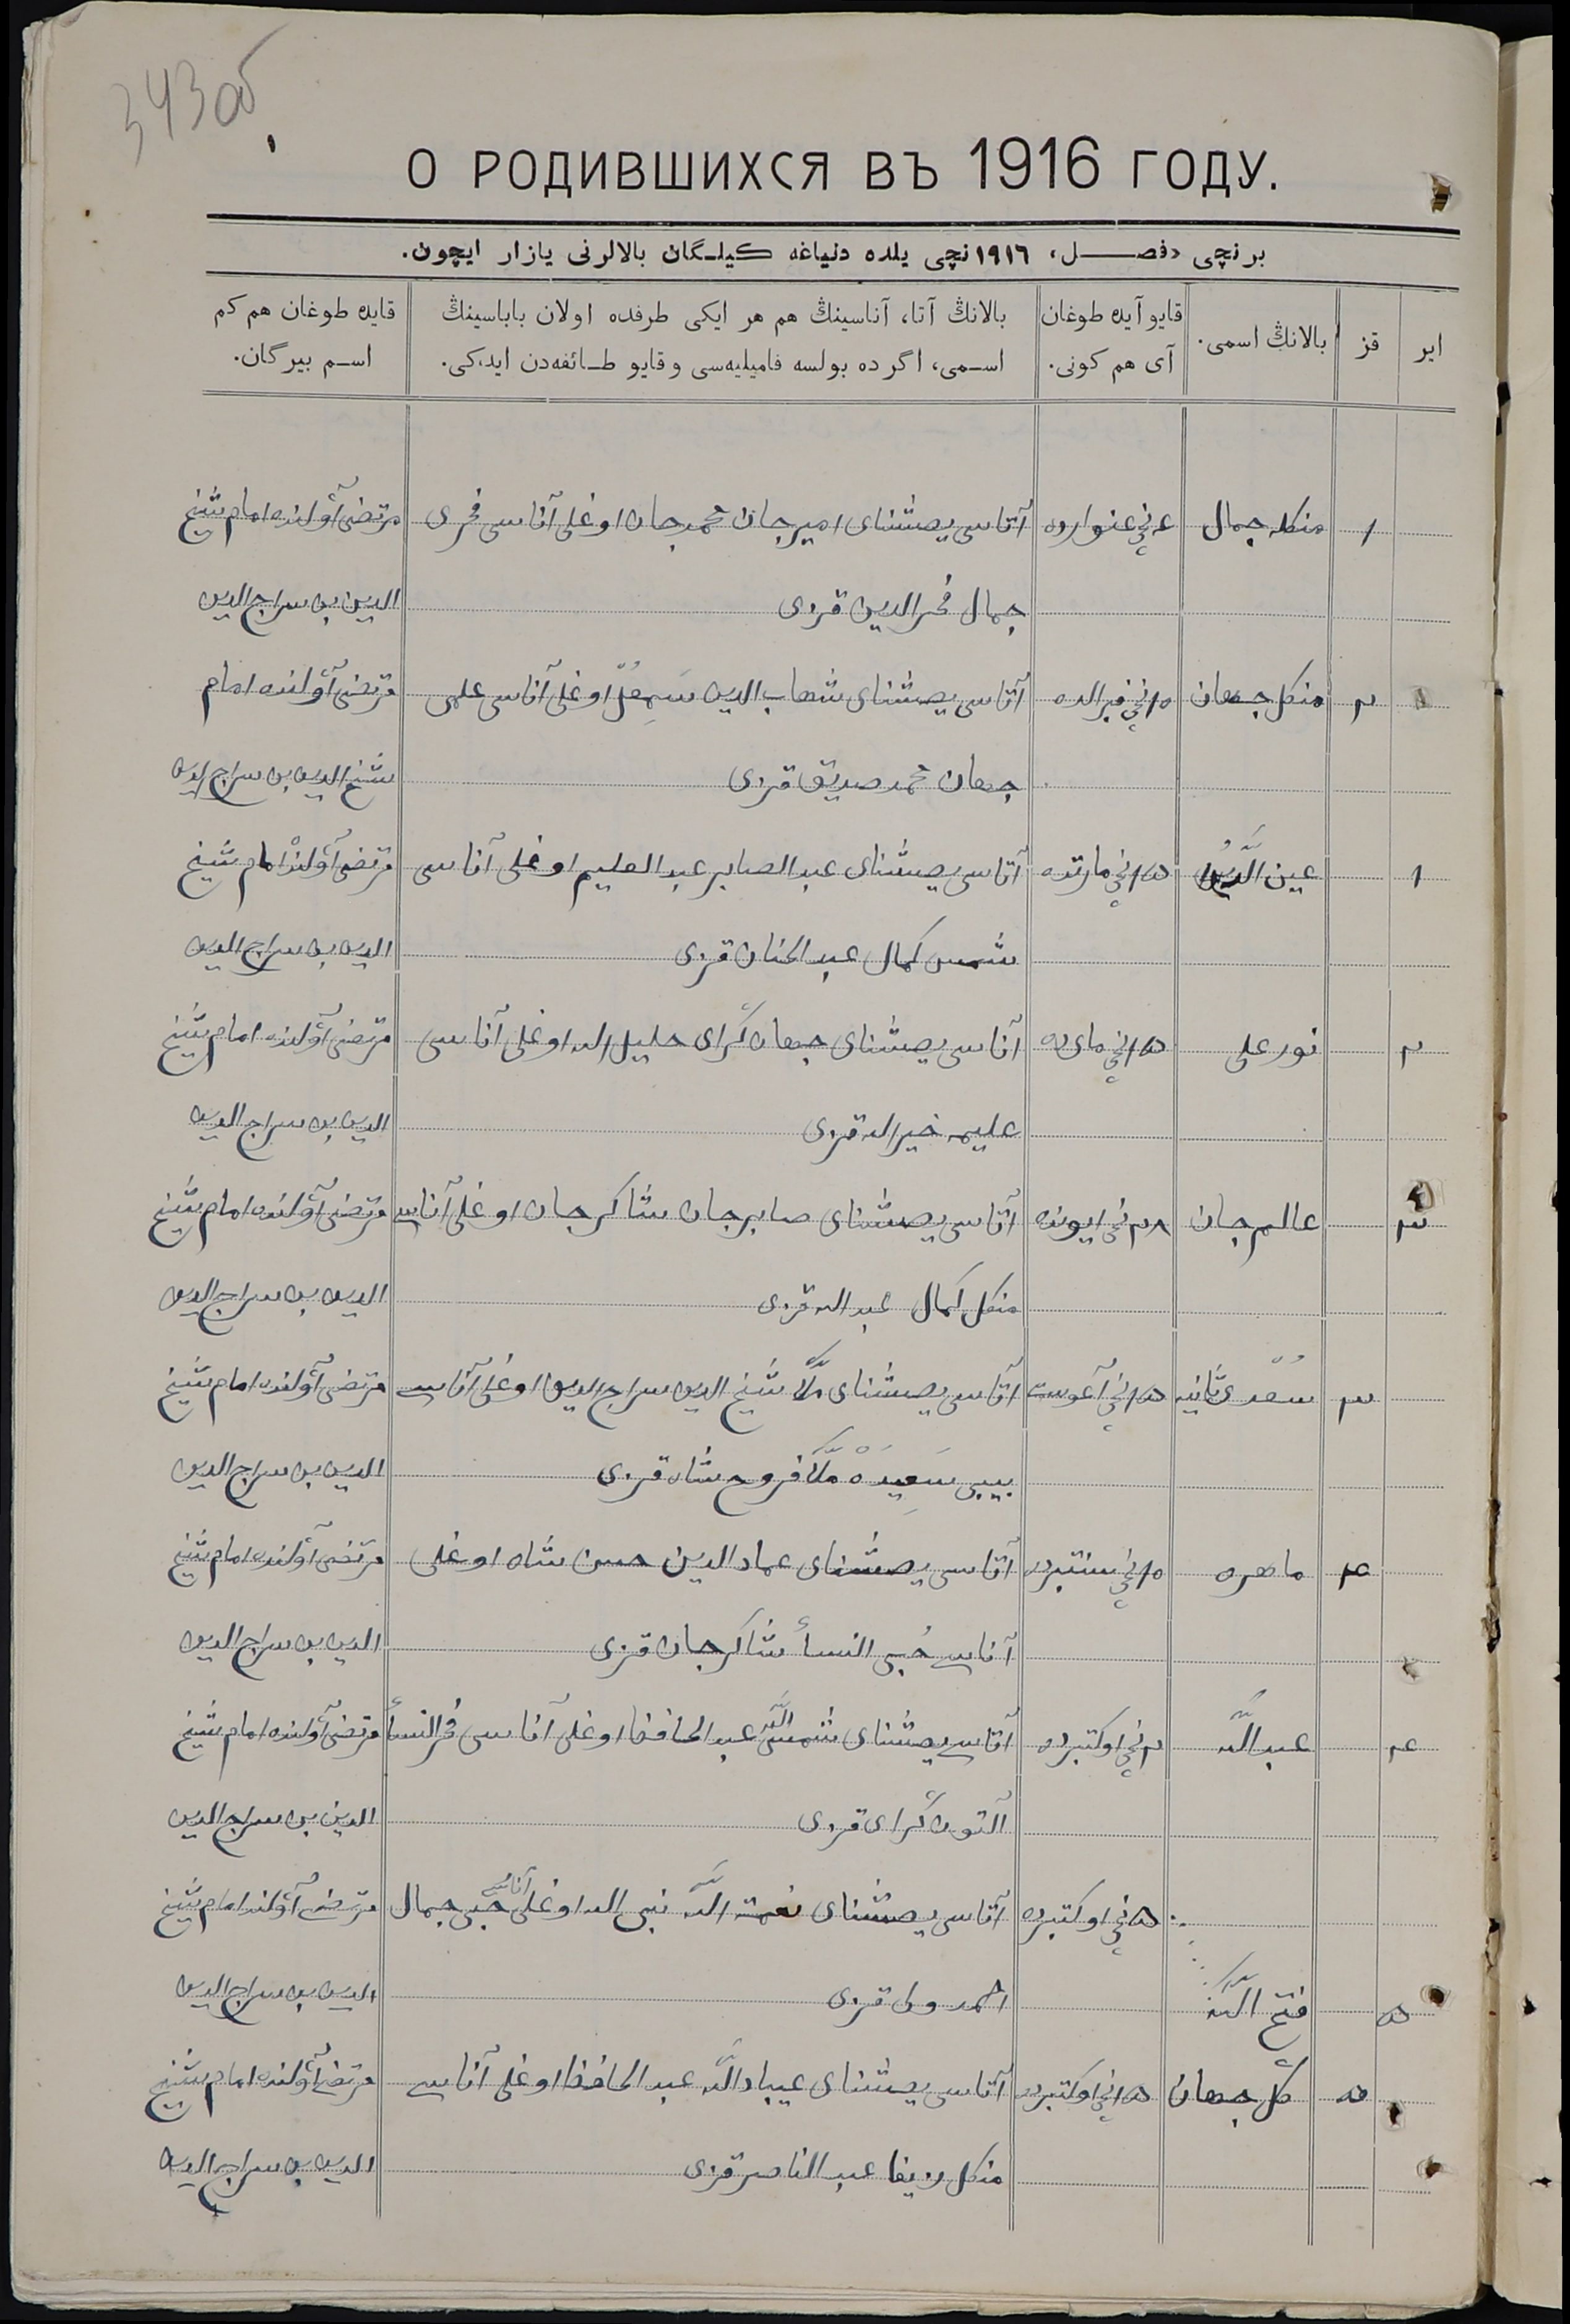 343об
О РОДИВШИХСЯ ВЪ 1916 ГОДУ.
برنچی «فصل» ١٩١٦ نچی یلده دنیاغه کیلگان بالالرنی یازار ایچون.
ایر
قز
بالانڭ اسمی.
قایو آیده طوغان
آی هم کونی.
بالانڭ آتا، آناسینڭ هم هر ایکی طرفده اولان باباسینڭ
اسمی، اگر ده بولسه فامیلیه‌سی و قایو طائفه‌دن ایدکی.
قایده طوغان هم کم
اسم بیرگان.
١ منکله جمال ٤ نچی غنوارده آتاسی یصشنای امیرجان محمدجان اوغلی آناسی فخری مرتضی آولنده امام شیخ
جمال فخرالدین قزی الدین بن سراج الدین
٢ منکل جهان ١٥ نچی فبرالده آتاسی یصشنای شهاب الدین اوغلی آناسی علمی مرتضی آولنده امام
جهان محمد صدیق قزی شیخ الدین بن سراج الدین
١ عین الدین ١٥ نچی مارتده آتاسی یصشنای عبد الصابر عبد العلیم اوغلی آناسی مرتضی آولنده امام شیخ
شمس کمال عبد الحنان قزی الدین بن سراج الدین
٢ نور علی ١٥ نچی مای ده آتاسی یصشنای جهان گرای خلیل الله اوغلی آناسی مرتضی آولنده امام شیخ
علیمه خیر الله قزی الدین بن سراج الدین
٣ عالم جان ٢٨ نچی ایونده آتاسی یصشنای صابرجان شاکرجان اوغلی آناسی مرتضی آولنده امام شیخ
منکل کمال عبد الله قزی الدین بن سراج الدین
٣ سعدی ثانیه ١٥ نچی آغوست آتاسی یصشنای ملا شیخ الدین سراج الدین اوغلی آناسی مرتضی آولنده امام شیخ
بیبی سعیدة ملا فروح شاه قزی الدین بن سراج الدین
٤ ماهره ١٥ نچی سنتبرده آتاسی یصشنای عماد الدین حسن شاه اوغلی مرتضی آولنده امام شیخ
آناسی حبی النسأ شاکرجان قزی الدین بن سراج الدین
٤ عبد الله ٢ نچی اوکتبرده آتاسی یصشنای شمس الله عبد الحافظ اوغلی آناسی فخر النسأ مرتضی آولنده امام شیخ
آلتون گرای قزی الدین بن سراج الدین
٥ نچی اوکتبرده آتاسی یصشنای نعمت الله نبی الله اوغلی آناسی حبی جمال مرتضی آولنده امام شیخ
٥ فتح الله احمد ولی قزی الدین بن سراج الدین
٥ گل جهان ١٥ نچی اوکتبرده آتاسی یصشنای عیباد الله عبد الحافظ اوغلی آناسی مرتضی آولنده امام شیخ
منکل زیفا عبد الناصر قزی الدین بن سراج الدین